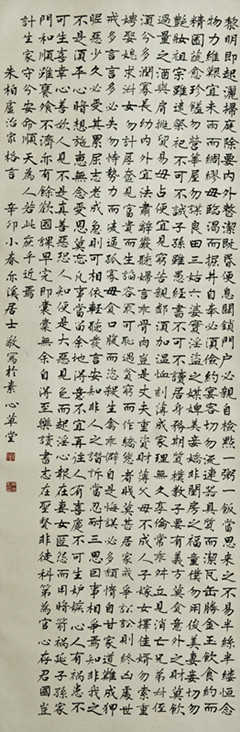 黎明即起灑掃庭除要內外整潔既昏便息關鎖門戶必親自檢點一粥一飯當思來之不易半絲半縷恆念
物力維艱宜未雨而綢繆毋臨渴而掘井自奉必須儉約宴客切勿流連器具質而潔瓦缶勝金玉飲食約而
精園蔬愈珍饈勿營華屋勿謀良田三姑六婆實淫盜之媒婢美妾嬌非閨房之福童僕勿用俊美妻妾切勿
艷妝祖宗雖遠祭祀不可不誠子孫雖愚經書不可不讀居身務期質樸教子要有義方莫貪意外之財莫飲
過量之酒與肩挑貿易毋佔便宜見窮苦親鄰須加溫恤刻薄成家理無久享倫常乖舛立見消亡兄弟叔姪
須分多潤寡長幼內外宜法肅辭嚴聽婦言乖骨肉豈是丈夫重資財薄父母不成人子嫁女擇佳婿勿索重
聘娶媳求淑女勿計厚奩見富貴而生諂容者最可恥遇貧窮而作驕態者賤莫甚居家戒爭訟訟則終凶處世
戒多言言多必失勿恃勢力而凌逼孤寡毋貪口腹而恣殺生禽乖僻自是悔誤必多頹惰自甘家道難成狎
昵惡少久必受其累屈志老成急則可相依輕聽發言安知非人之譖訴當忍耐三思因事相爭焉知非我之
不是須平心暗想施惠無念受恩莫忘凡事當留餘地得意不宜再往人有喜慶不可生妒嫉心人有禍患不
可生喜幸心善欲人見不是真善惡恐人知便是大惡見色而起淫心報在妻女匿怨而用暗箭禍延子孫家
門和順雖饔飧不濟亦有餘歡國課早完即囊橐無餘自得至樂讀書志在聖賢非徒科第為官心存君國豈
計生家守分安命順天為人若此庶乎近焉
朱柏廬治家格言 辛卯小春亦溪居士敬寫於素心草堂